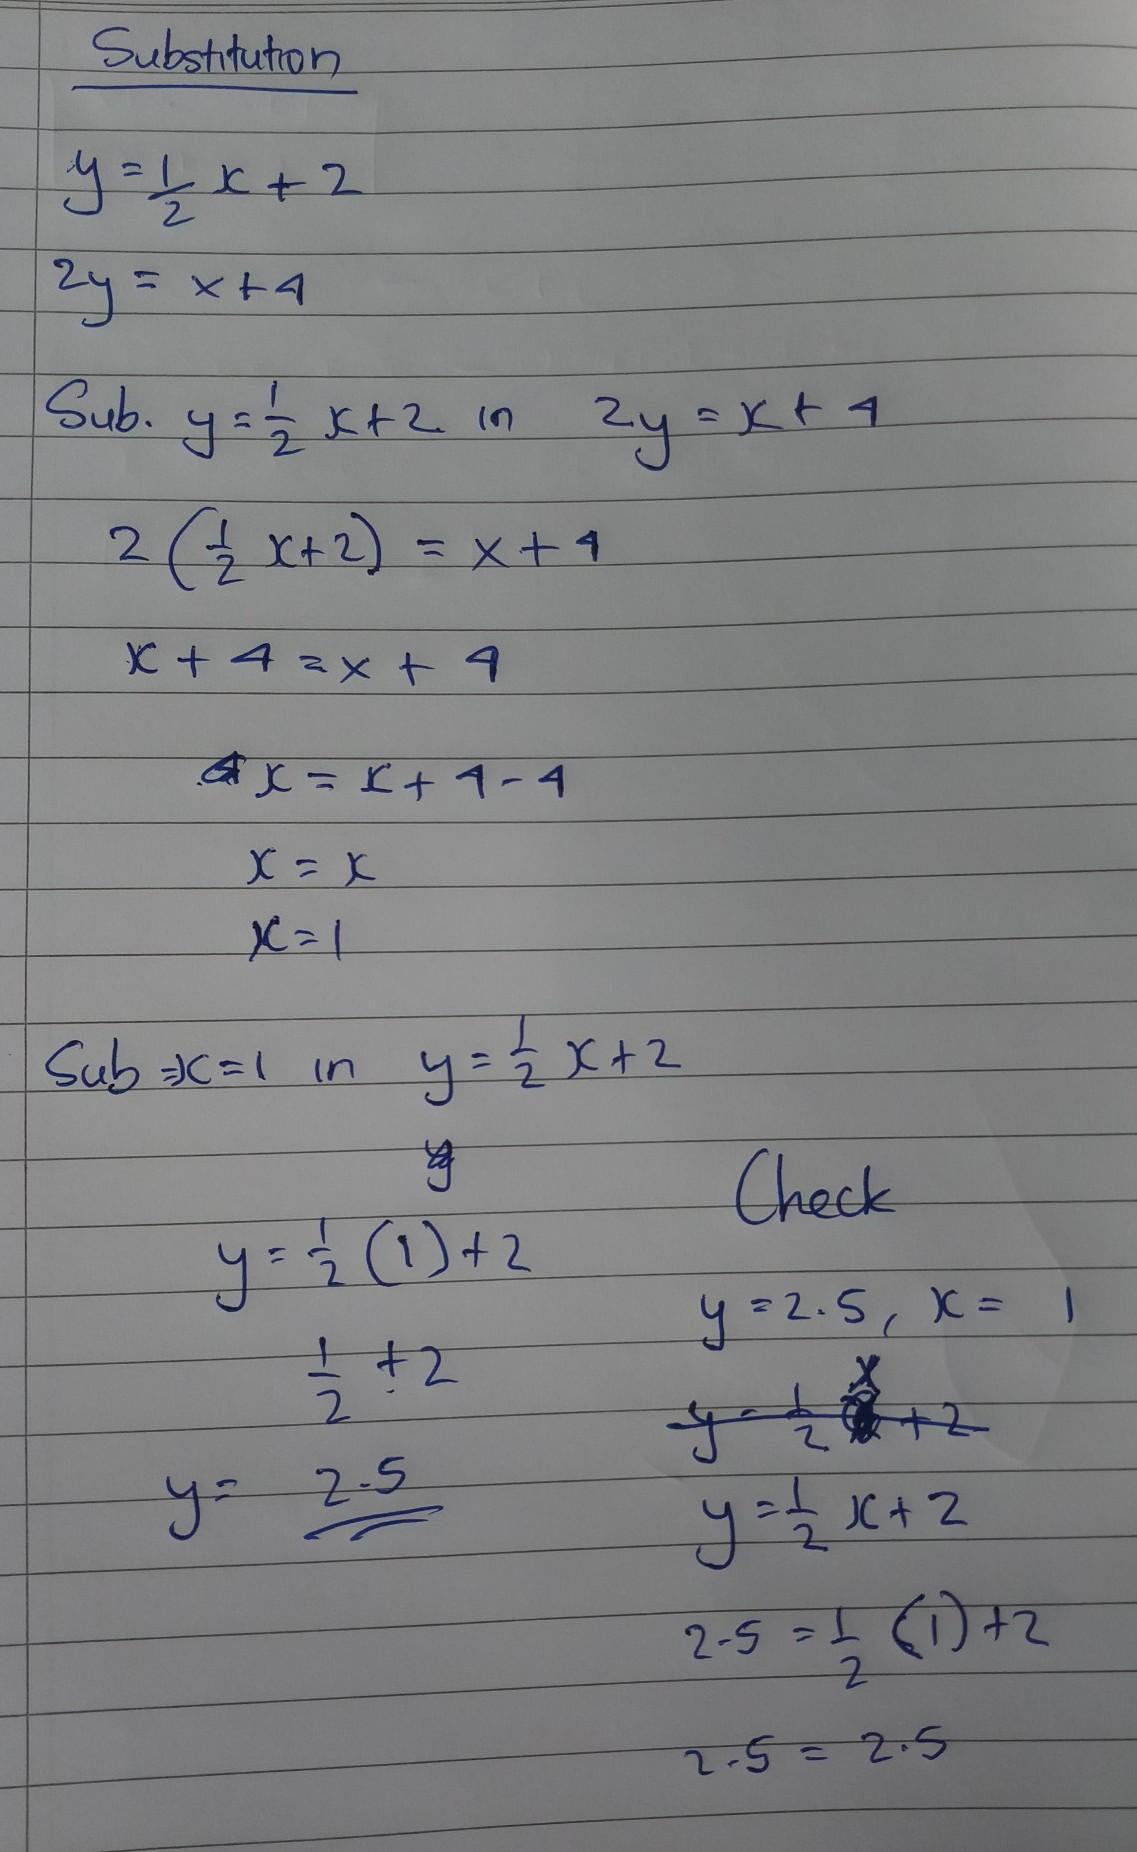 Substitution
y = 1/2 x + 2
2y = x + 4
Sub. y = 1/2 x + 2 in 2y = x + 4
2 (1/2 x + 2) = x + 4
x + 4 = x + 4
x = x + 4 - 4
x = x
x = 1
Sub x = 1 in y = 1/2 x + 2
y
y = 1/2 (1) + 2
1/2 + 2
y = 2.5
Check
y = 2.5, x = 1
y = 1/2 x + 2
y = 1/2 x + 2
2.5 = 1/2 (1) + 2
2.5 = 2.5